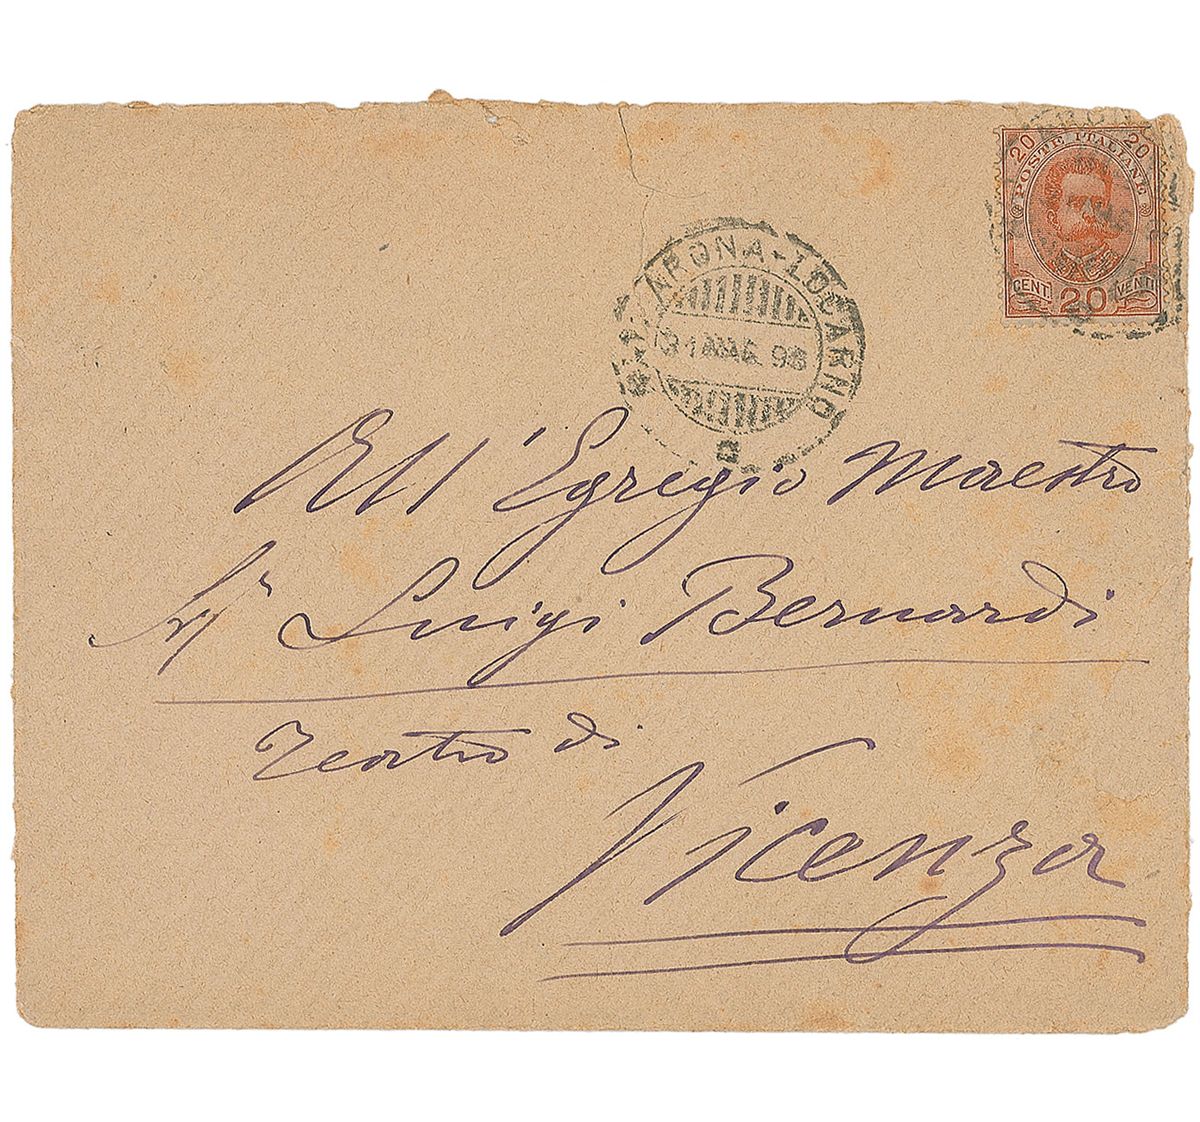 20 POSTE ITALIANE 20
CENT. 20 VENTI
ARONA-LOCARNO
31 MAG. 98
All'Egregio Maestro
Sigr Luigi Bernardi
Teatro di
Vicenza